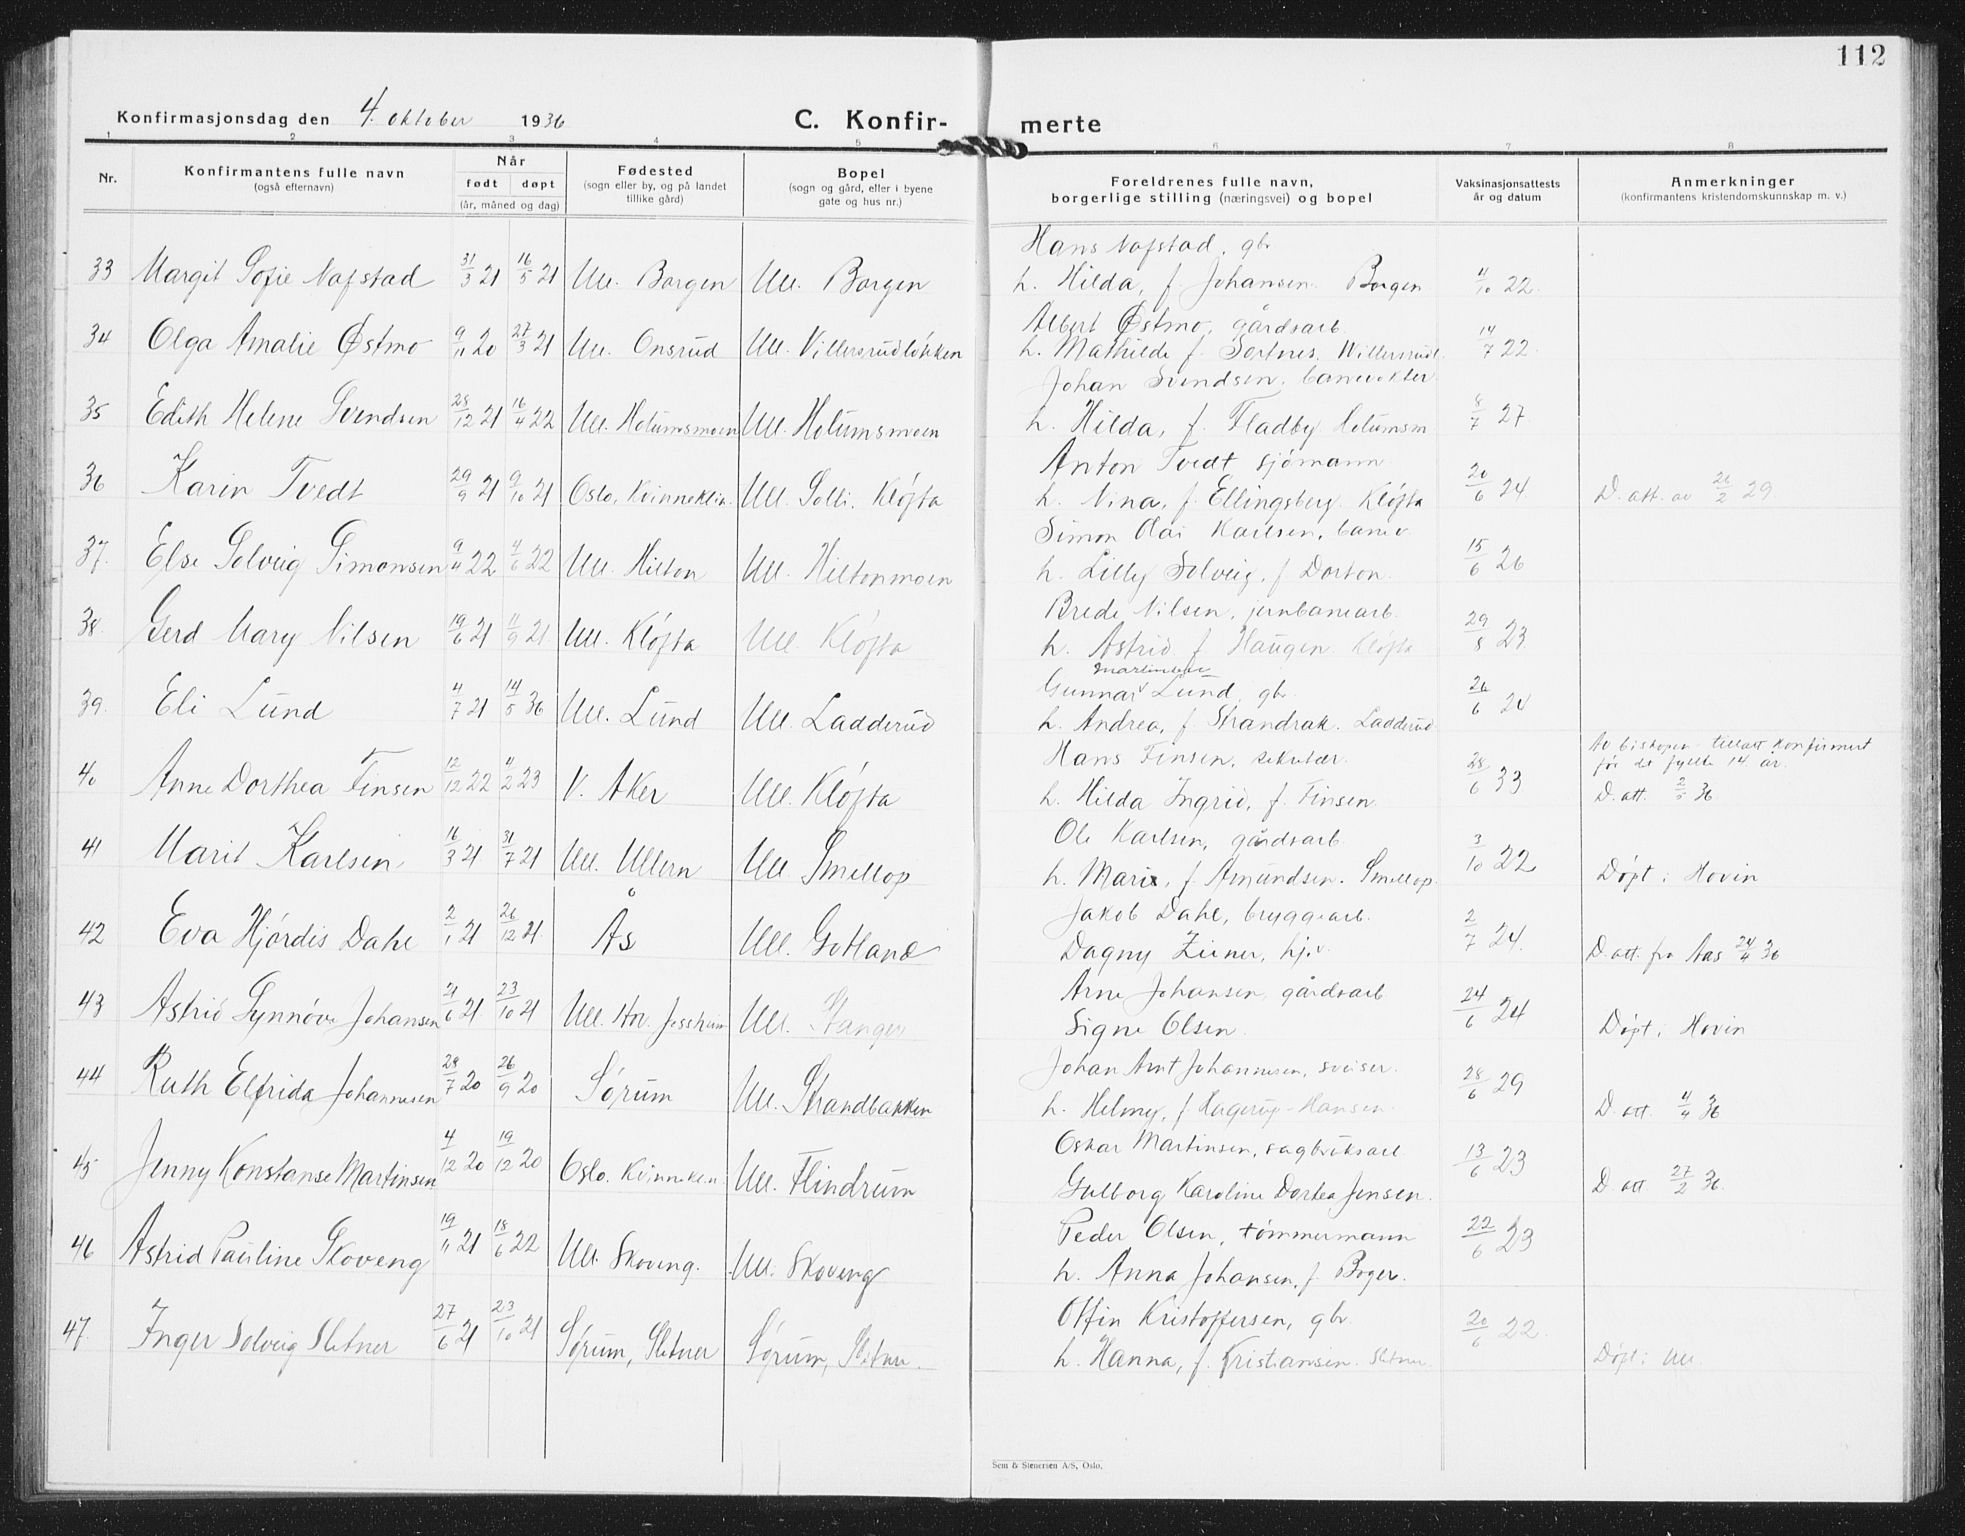 112
Konfirmasjonsdag den 4. oktober 1936
C. Konfir- merte
1 2 3 4 5 6 7 8
Nr.
Konfirmantens fulle navn
(også efternavn)
Når
født døpt
(år, måned og dag)
Fødested
(sogn eller by, og på landet
tillike gård)
Bopel
(sogn og gård, eller i byene
gate og hus nr.)
Foreldrenes fulle navn,
borgerlige stilling (næringsvei) og bopel
Vaksinasjonsattests
år og datum
Anmerkninger
(konfirmantens kristendomskunnskap m. v.)
Hans Nafstad, gbr
33 Margit Sofie Nafstad 31/3 21 16/5 21 Ull. Borgen Ull. Borgen h. Hilda, f. Johansen. Borgen 11/10 22.
Albert Østmo, gårdsarb.
34 Olga Amalie Østmo 9/11 20 27/3 21 Ull. Onsrud Ull. Villersrudløkken h. Mathilde f. Sortnes. Willersrudl. 14/7 22.
Johan Svendsen, banevokter
35 Edith Helene Svendsen 28/12 21 16/4 22 Ull. Holumsmoen Ull. Holumsmoen h. Hilda, f. Fladby Holumsm 8/7 27.
Anton Tvedt sjømann
36 Karin Tvedt 29/9 21 9/10 21 Oslo, Kvinneklin. Ull. Solli. Kløfta h. Nina, f. Ellingsberg. Kløfta 20/6 24. D. att. av 26/2 29
Simon Olai Karlsen, banev.
37. Else Solveig Simonsen 9/4 22 4/6 22 Ull. Hilton Ull. Hiltonmoen h. Lilly Solveig, f. Dorton. 15/6 26
Brede Nilsen, jernbanearb.
38. Gerd Mary Nilsen 19/6 21 11/9 21 Ull. Kløfta Ull. Kløfta h. Astrid f. Haugen Kløfta 29/8 23.
Gunnar Lund, gbr.
39. Eli Lund 4/7 21 14/5 36 Ull. Lund Ull. Ladderud h. Andrea, f. Strandrak. Ladderud 26/6 24
Hans Finsen, sekretær. Av biskopen tillatt konfirmert
før de fyllte 14 år.
40 Anne Dorthea Finsen 12/12 22 11/2 23 V. Aker Ull. Kløfta h. Hilda Ingrid, f. Finsen. 28/6 33 D. att. 2/5 36
Ole Karlsen, gårdsarb
41 Marit Karlsen 16/3 21 31/7 21 Ull. Ullern Ull Smellop h. Marie, f. Amundsen. Smellop. 3/10 22 Døpt i Hovin
Jakob Dahl, bryggearb.
42 Eva Hjørdis Dahl 2/1 21 26/12 21. Ås Ull. Gotland Dagny Zeiner, hj.v. 2/7 24. D. att. fra Aas 24/4 36
Arne Johansen, gårdsarb
43 Astrid Synnøve Johansen 21/6 21 23/10 21 Ull. Hov. Jessheim Ull. Stanger Signe Olsen. 24/6 24 Døpt i Hovin
Johan Arnt Johannesen, sveiser.
44 Ruth Elfrida Johannesen 28/7 20 26/9 20 Sørum Ull. Strandbakken h. Helmy, f. Hagerup-Hansen. 28/6 29 D. att. 4/4 36
Oskar Martinsen, sagbruksarb.
45 Jenny Konstanse Martinsen 4/12 20 19/12 20 Oslo. Kvinneken. Ull. Flindrum Gulborg Karoline Dortea Jensen. 13/6 23 D. att 27/2 36.
Peder Olsen, tømmermann
46 Astrid Pauline Skoveng 19/11 21 18/6 22 Ull. Skoveng. Ull. Skoveng h. Anna Johansen, f. Boger. 22/6 23
Offin Kristoffersen, gbr.
47. Inger Solveig Sletner 27/6 21 23/10 21 Sørum, Sletner Sørum, Sletne. h. Hanna, f. Kristiansen. Sletner. 20/6 22. Døpt i Ull.
Sem & Stenersen A/S, Oslo.